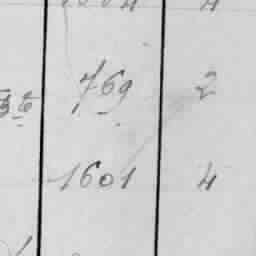 36 769 2
1601 4